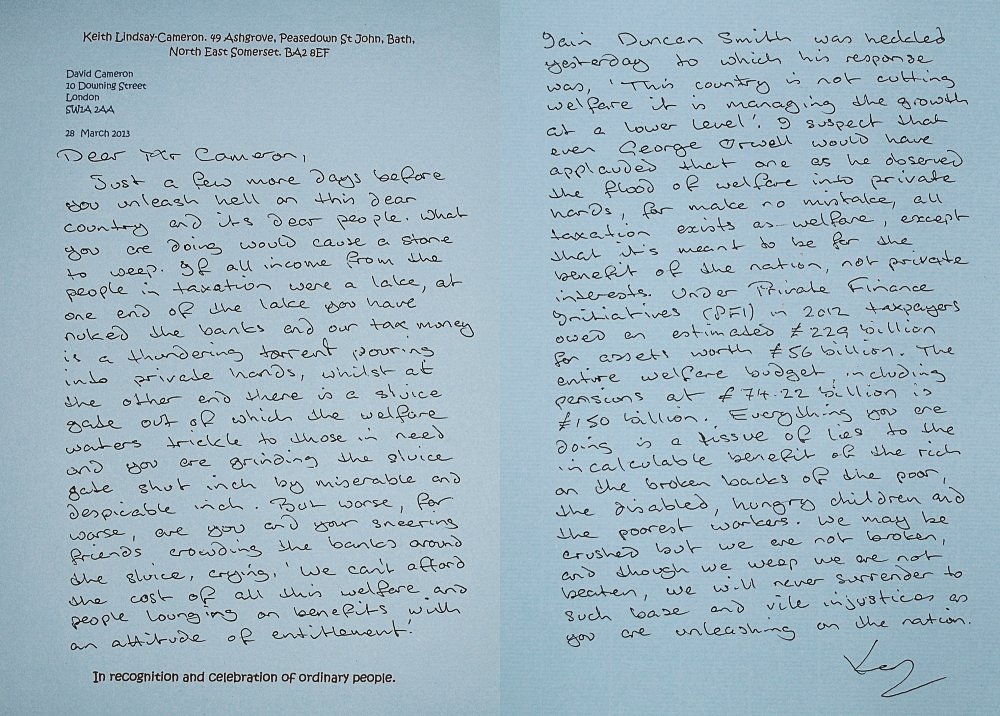 Keith Lindsay-Cameron. 49 Ashgrove, Peasedown St John, Bath,
North East Somerset. BA2 8EF
David Cameron
10 Downing Street
London
SW1A 2AA
28 March 2013
Dear Mr Cameron,
Just a few more days before
you unleash hell on this dear
country and its dear people. What
you are doing would cause a stone
to weep. If all income from the
people in taxation were a lake, at
one end of the lake you have
nuked the banks and our tax money
is a thundering torrent pouring
into private hands, whilst at
the other end there is a sluice
gate out of which the welfare
waters trickle to those in need
and you are grinding the sluice
gate shut inch by miserable and
despicable inch. But worse, far
worse, are you and your sneering
friends crowding the banks around
the sluice, crying, 'We can't afford
the cost of all this welfare and
people lounging on benefits with
an attitude of entitlement.'
In recognition and celebration of ordinary people.
Iain Duncan Smith was heckled
yesterday to which his response
was, 'This country is not cutting
welfare it is managing the growth
at a lower level'. I suspect that
even George Orwell would have
applauded that one as he observed
the flood of welfare into private
hands, for make no mistake, all
taxation exists as welfare, except
that it's meant to be for the
benefit of the nation, not private
interests. Under Private Finance
Initiatives (PFI) in 2012 taxpayers
owed an estimated £229 billion
for assets worth £56 billion. The
entire welfare budget, including
pensions at £74.22 billion is
£150 billion. Everything you are
doing is a tissue of lies to the
incalculable benefit of the rich
on the broken backs of the poor,
the disabled, hungry children and
the poorest workers. We may be
crushed but we are not broken,
and though we weep we are not
beaten, we will never surrender to
such base and vile injustices as
you are unleashing on the nation.